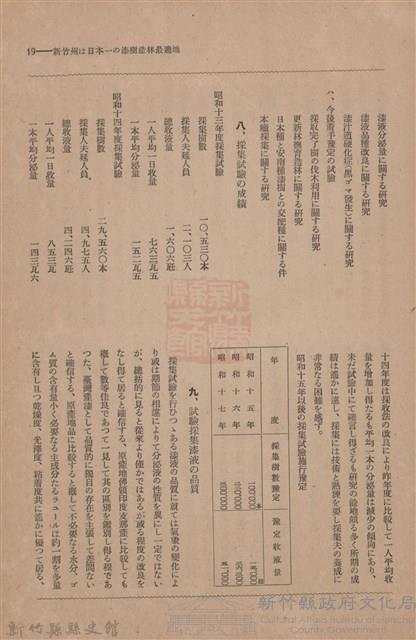 19——新竹州は日本一の漆樹造林最適地
漆液分泌量に關する研究
漆液品種改良に關する研究
漆汁道硬化症(黑ゴマ發生)に關する研究
八、今後着手豫定の試驗
採取完了樹の伐木利用に關する研究
更新林撫育造林に關する研究
日本種と安南種漆樹との交配種に關する件
本蠟採集に關する研究
八、採集試驗の成績
昭和十三年度採集試驗
採集樹數 一〇、五三〇本
採集人夫延人員 二、一〇三人
總收液量 一、六〇六瓩
一人平均一日收量 七六三瓦五
一本平均分泌量 一五二瓦五
昭和十四年度採集試驗
採集樹數 二九、五六〇本
採集人夫延人員 四、九七五人
總收液量 四、二四六瓩
一人平均一日收量 八五三瓦
一本平均分泌量 一四三瓦六
十四年度は採收法の改良により昨年度に比較して一人平均收
量を增加し得たるも平均一本の分泌量は減少の傾向にあり、
未だ試驗中にて確言し得ざるも研究の餘地頗る多く所期の成
績は遙かに遠し、採集には技術と熟練を要し採集夫の養成に
非常なる困難を感ず。
昭和十五年以後の採集試驗施行豫定
年 度 採集樹數豫定 豫定收液量
昭和十五年
昭和十六年
昭和十七年
九、試驗採集漆液の品質
採集試驗を行ひつゝある漆液の品質に就ては氣象の變化によ
り或は期節の相違によりて分泌液の性質を異にし一定ではない
が、總括的に見ると從來より僅かではあるが或る程度の改良を
なし得て居ると確信する、原產地佛領印度支那產に比較しても
概して數等佳良であつて一見して其の區別を鑑別し得る程であ
つた、臺灣產漆として品質的に獨自の存在を主張して差閊ない
と確信する、原產地品に比較すると概して不必要なる水分、ゴ
ム質の含有量小く必要なる主成分たるラユールは約一割を多量
に含有し且つ乾燥度、光澤度、粘着度共に遙かに優つて居る。
新竹縣縣史館
新竹縣政府文化局
Cultural Affairs Bureau of Hsinchu
County Government